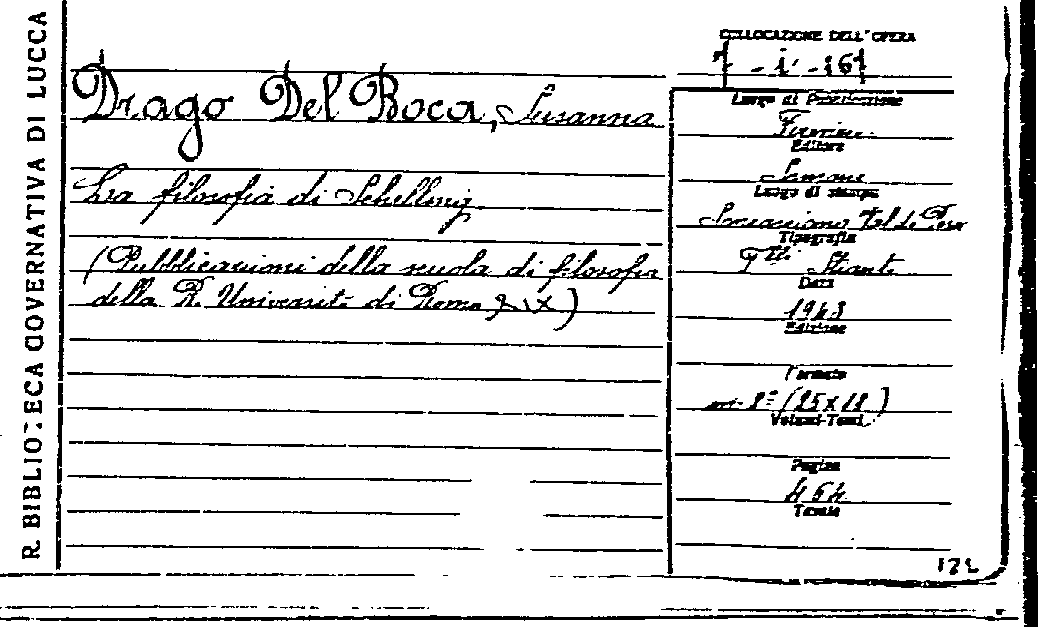 R. BIBLIOTECA GOVERNATIVA DI LUCCA
COLLOCAZIONE DELL'OPERA
Drago Del Boca, Susanna
Luogo di Pubblicazione
Firenze
Editore
La filosofia di Schelling
Sansoni
Luogo di stampa
Tipografia
(Pubblicazioni della scuola di filosofia
F.lli Stianti
Data
della R. Università di Roma XIX)
1943
Edizione
Formato
in-8° (25x18)
Volumi-Tomi
Pagine
464
Tavole